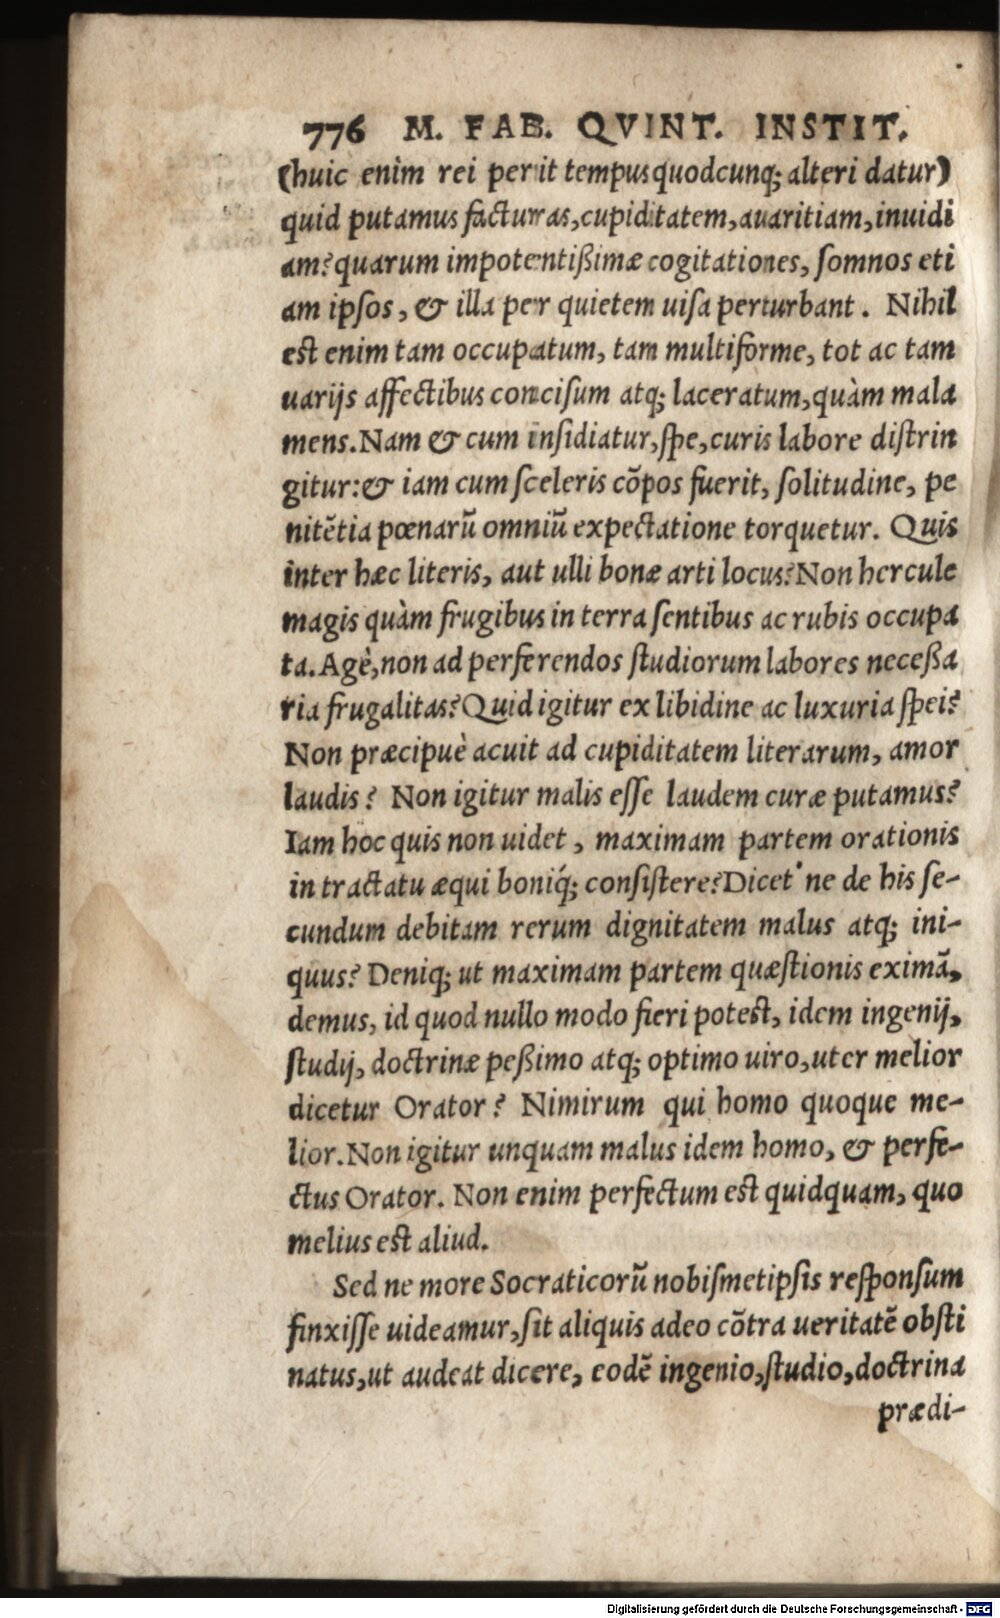 776 M. FAB. QVINT. INSTIT.
(huic enim rei perit tempus quodcunq; alteri datur)
quid putamus facturas, cupiditatem, auaritiam, inuidi
am? quarum impotentißimæ cogitationes, ſomnos eti
am ipſos, & illa per quietem uiſa perturbant. Nihil
est enim tam occupatum, tam multiforme, tot ac tam
uarijs affectibus conciſum atq; laceratum, quàm mala
mens. Nam & cum inſidiatur, ſpe, curis labore diſtrin
gitur: & iam cum ſceleris cõpos fuerit, ſolitudine, pe
nitẽtia pœnarũ omniũ expectatione torquetur. Quis
inter hæc literis, aut ulli bonæ arti locus? Non hercule
magis quàm frugibus in terra ſentibus ac rubis occupa
ta. Agè, non ad perferendos ſtudiorum labores neceßa
ria frugalitas? Quid igitur ex libidine ac luxuria ſpei?
Non præcipuè acuit ad cupiditatem literarum, amor
laudis? Non igitur malis eſſe laudem curæ putamus?
Iam hoc quis non uidet, maximam partem orationis
in tractatu æqui boniq́; conſiſtere? Dicet' ne de his ſe-
cundum debitam rerum dignitatem malus atq; ini-
quus? Deniq; ut maximam partem quæſtionis eximã,
demus, id quod nullo modo fieri potest, idem ingenij,
ſtudij, doctrinæ peßimo atq; optimo uiro, uter melior
dicetur Orator? Nimirum qui homo quoque me-
lior. Non igitur unquam malus idem homo, & perfe-
ctus Orator. Non enim perfectum est quidquam, quo
melius est aliud.
Sed ne more Socraticorũ nobiſmetipſis reſponſum
finxiſſe uideamur, ſit aliquis adeo cõtra ueritatẽ obſti
natus, ut audeat dicere, eodẽ ingenio, ſtudio, doctrina
prædi-
Digitalisierung gefördert durch die Deutsche Forschungsgemeinschaft - DFG